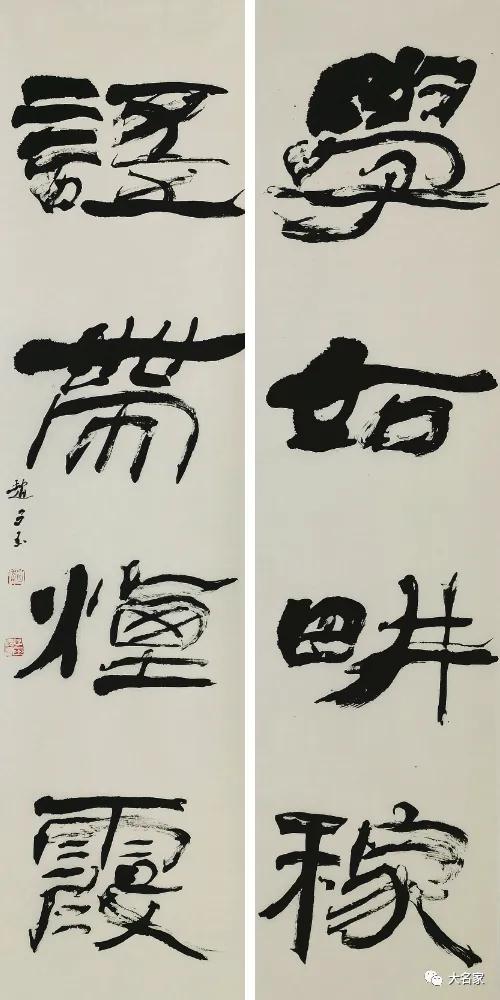 學如畊稼
語帶煙霞
趙
大名家